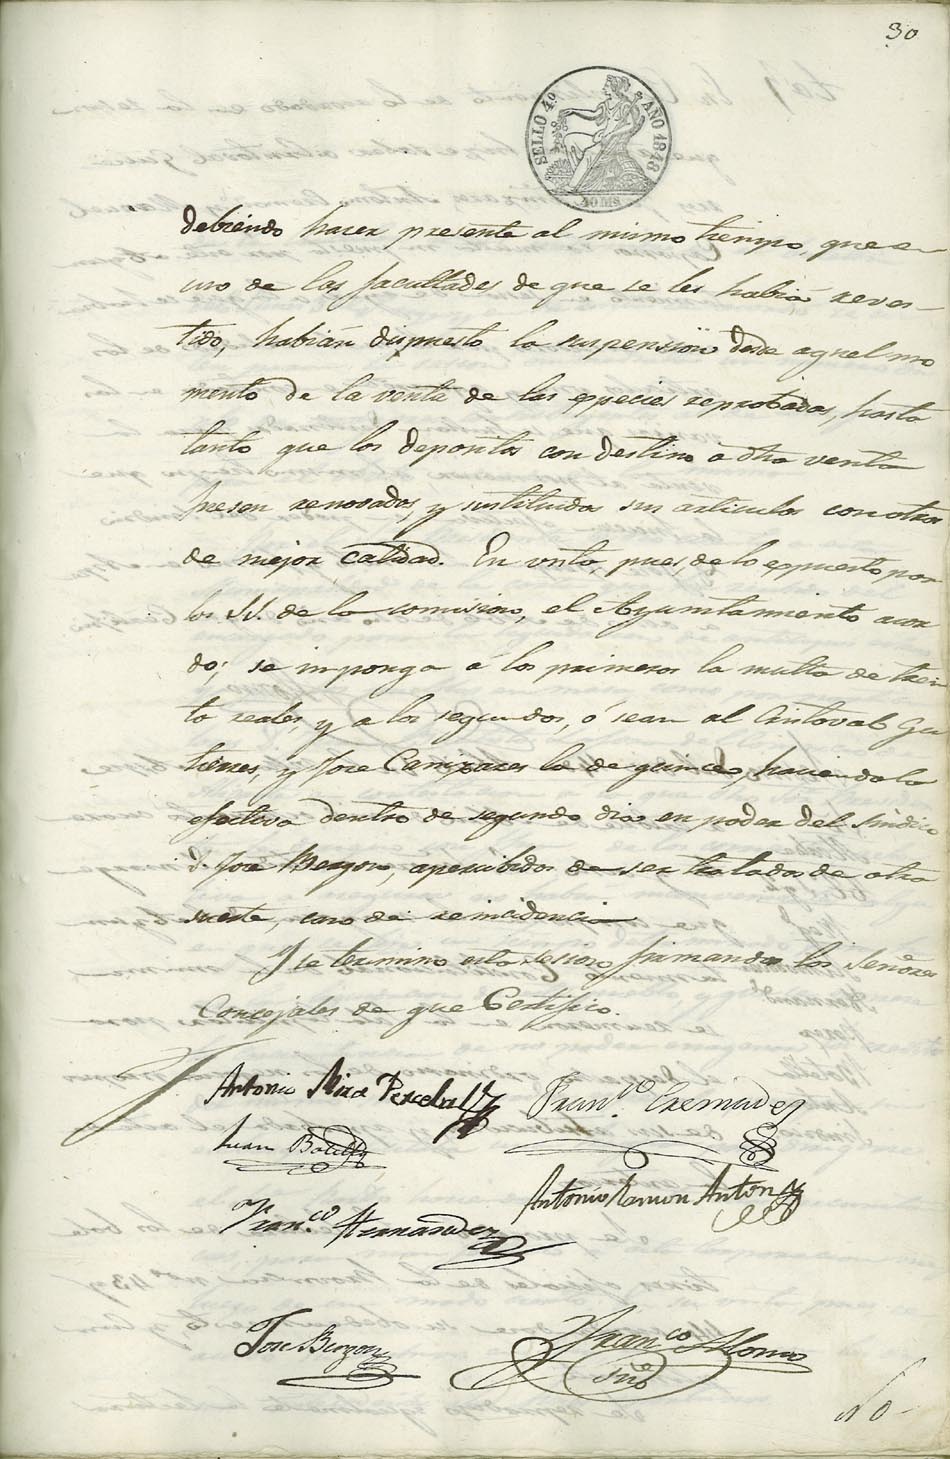 30
SELLO 4º AÑO 1848
40 MS
debiendo hacer presente al mismo tiempo, que en
uso de las facultades de que se les habia reves
tido, habian dispuesto la suspension desde aquel mo
mento de la venta de las especies reprobadas, hasta
tanto que los depositos con destino a dha venta
fuesen renovados, y sustituidos sus articulos con otros
de mejor calidad. En vista, pues, de lo expuesto por
los SS. de la comision, el Ayuntamiento acor
dó; se imponga á los primeros la multa de trein
ta reales, y a los segundos, ó sean al Cristoval Gu
tierres, y Jose Canizares la de quince, haciendola
efectiva dentro de segundo dia en poder del sindico
D. Jose Berzon, apercibidos de ser tratados de otra
suerte, caso de reincidencia
Y se termino esta session firmando los Señores
Concejales de que Certifico.
Antonio Mira Perceval
Franco. Cremades
Juan Botella
Antonio Ramon Anton
Franco. Hernandez
Jose Berzon
Franco Alonso
Srio